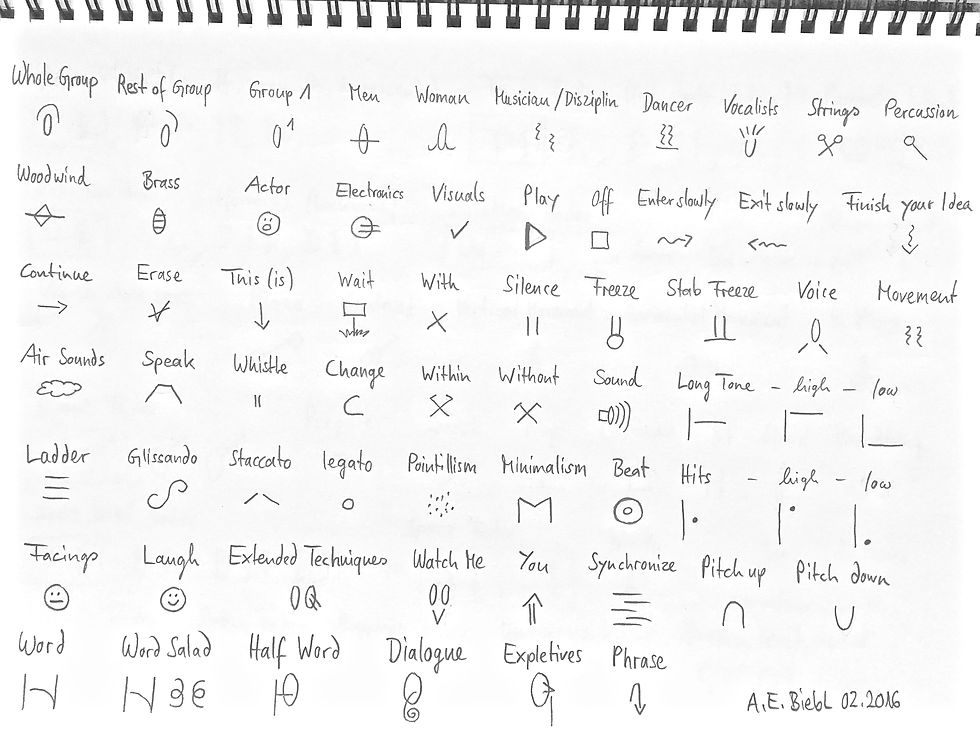 Whole Group Rest of Group Group 1 Men Woman Musician/Disziplin Dancer Vocalists Strings Percussion
Woodwind Brass Actor Electronics Visuals Play Off Enter slowly Exit slowly Finish your Idea
Continue Erase This (is) Wait With Silence Freeze Stab Freeze Voice Movement
Air Sounds Speak Whistle Change Within Without Sound Long Tone - high - low
Ladder Glissando Staccato legato Pointillism Minimalism Beat Hits - high - low
Facings Laugh Extended Techniques Watch Me You Synchronize Pitch up Pitch down
Word Word Salad Half Word Dialogue Expletives Phrase
A.E. Biebl 02.2016